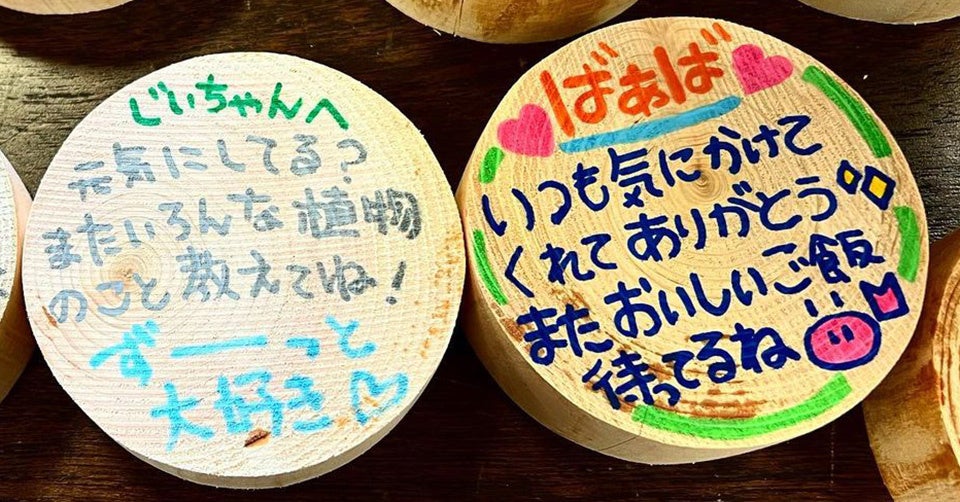 じいちゃんへ
元気にしてる?
またいろんな植物
のこと教えてね!
ずーっと
大好き
ばぁば
いつも気にかけて
くれてありがとう
またおいしいご飯
待ってるね